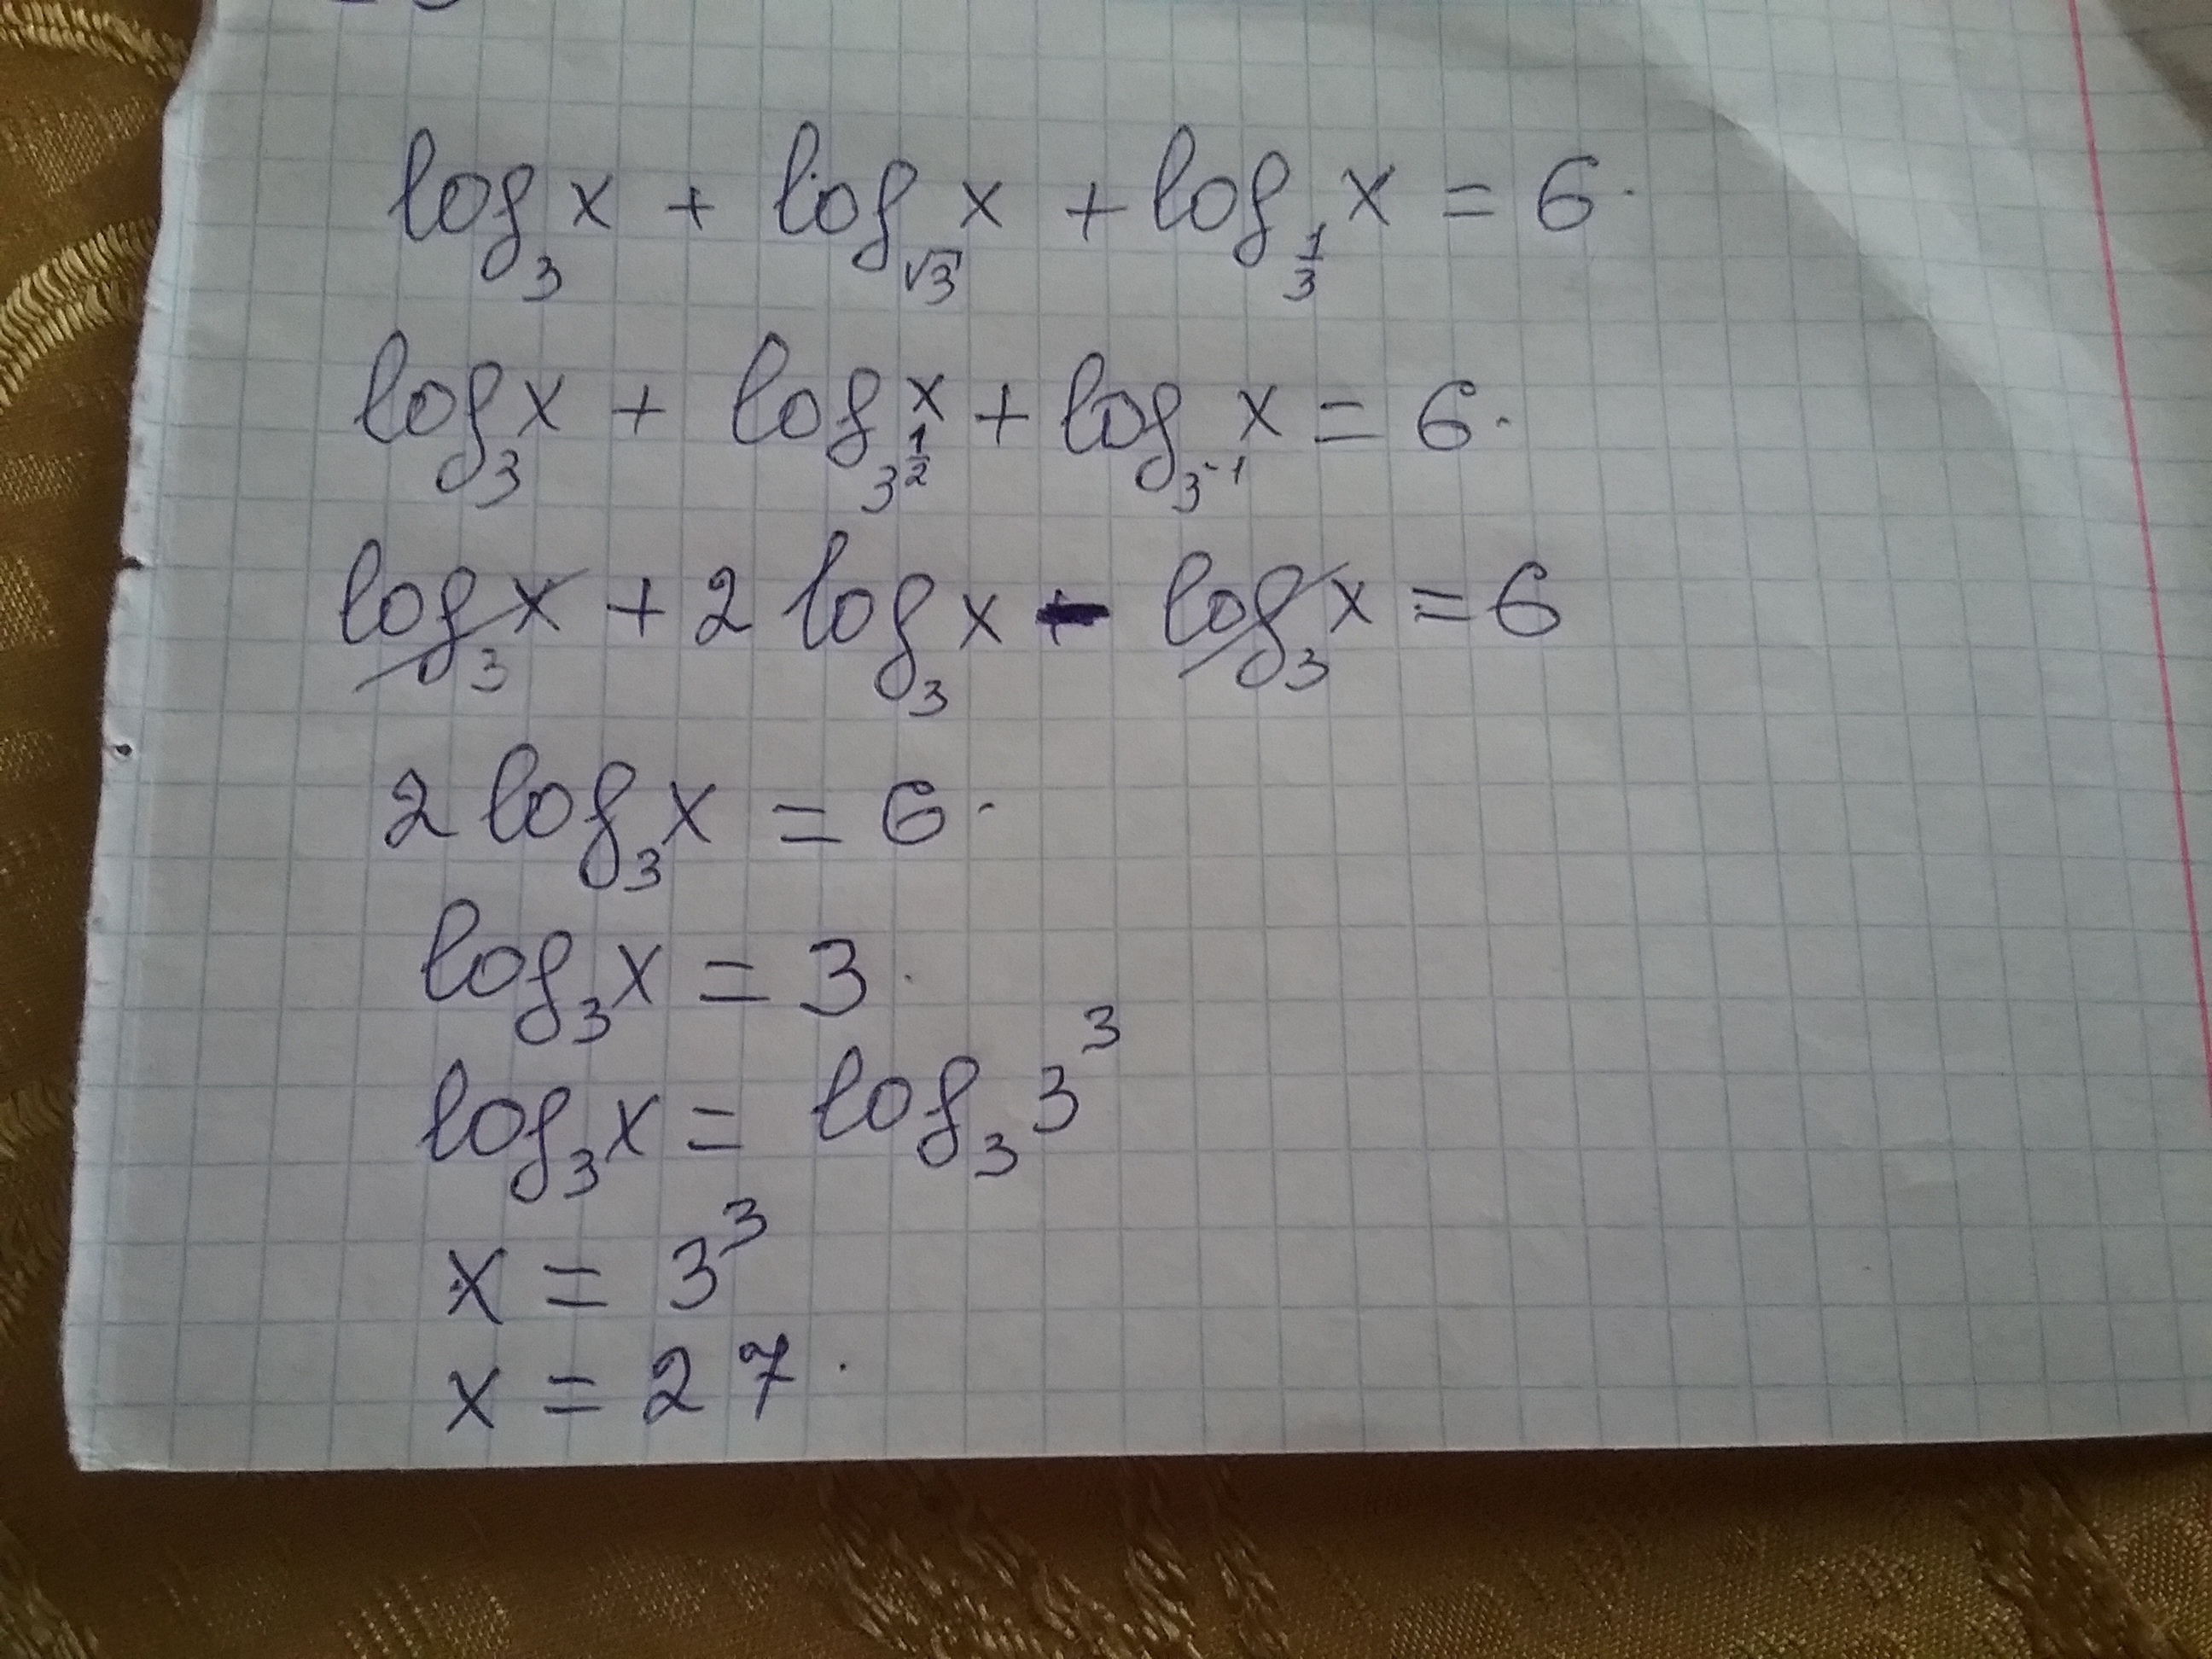 log₃x + log_√3 x + log_1/3 x = 6.
log₃x + log_3^1/2 x + log_3^-1 x = 6.
log₃x + 2 log₃x - log₃x = 6
2 log₃x = 6.
log₃x = 3.
log₃x = log₃3³
x = 3³
x = 27.